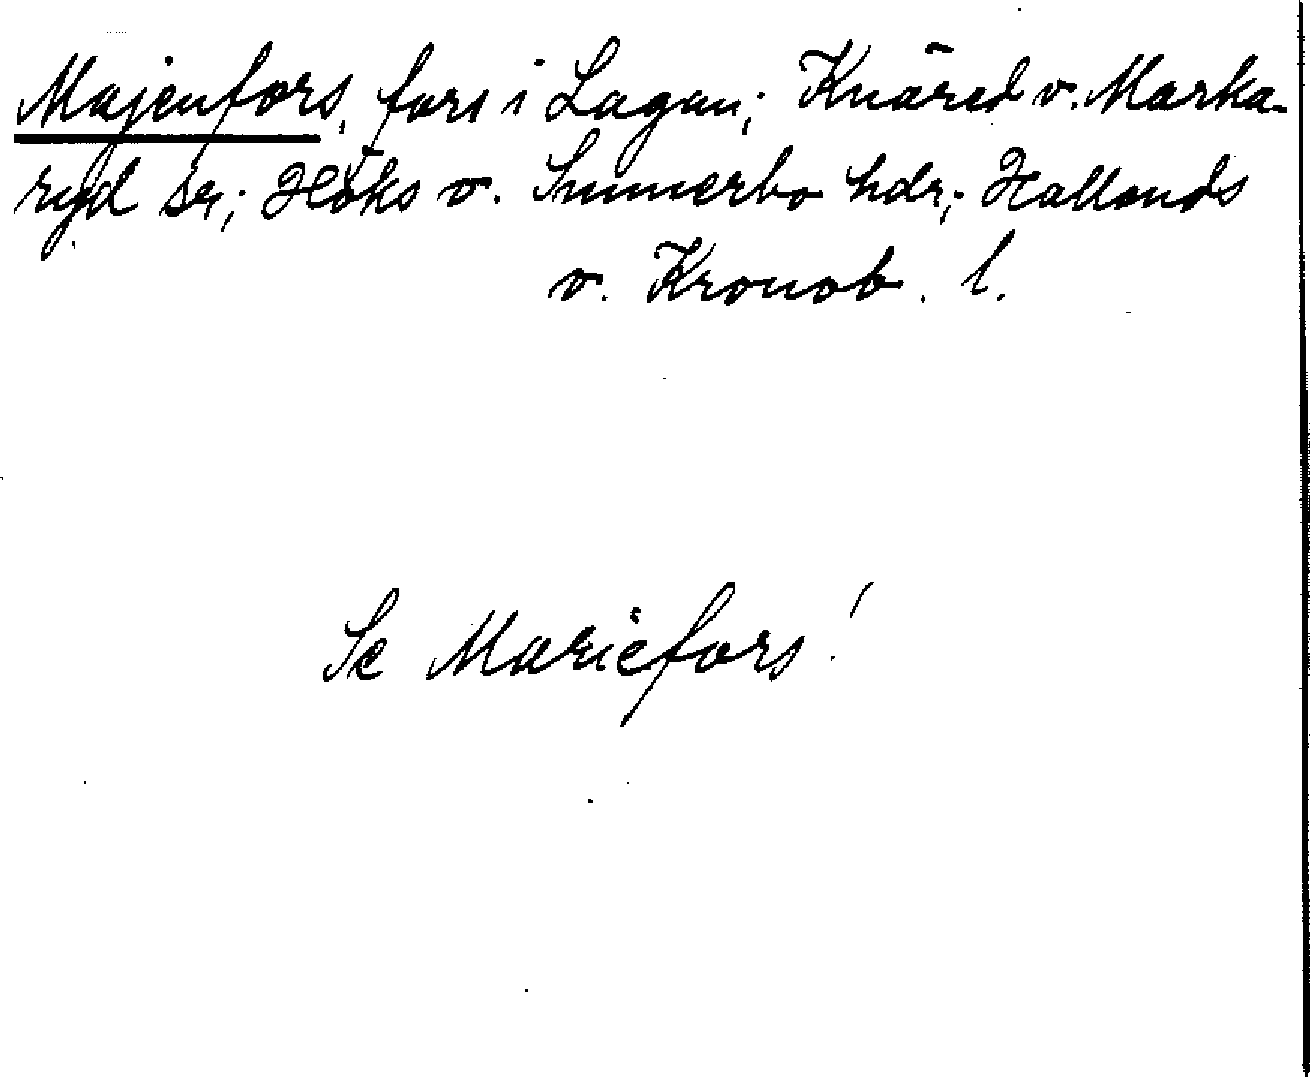 Majenfors, fors i Lagan; Knäred o. Marka-
ryd sr; Höks o. Sunnerbo hdr; Hallands
o. Kronob. l.
Se Mariefors!